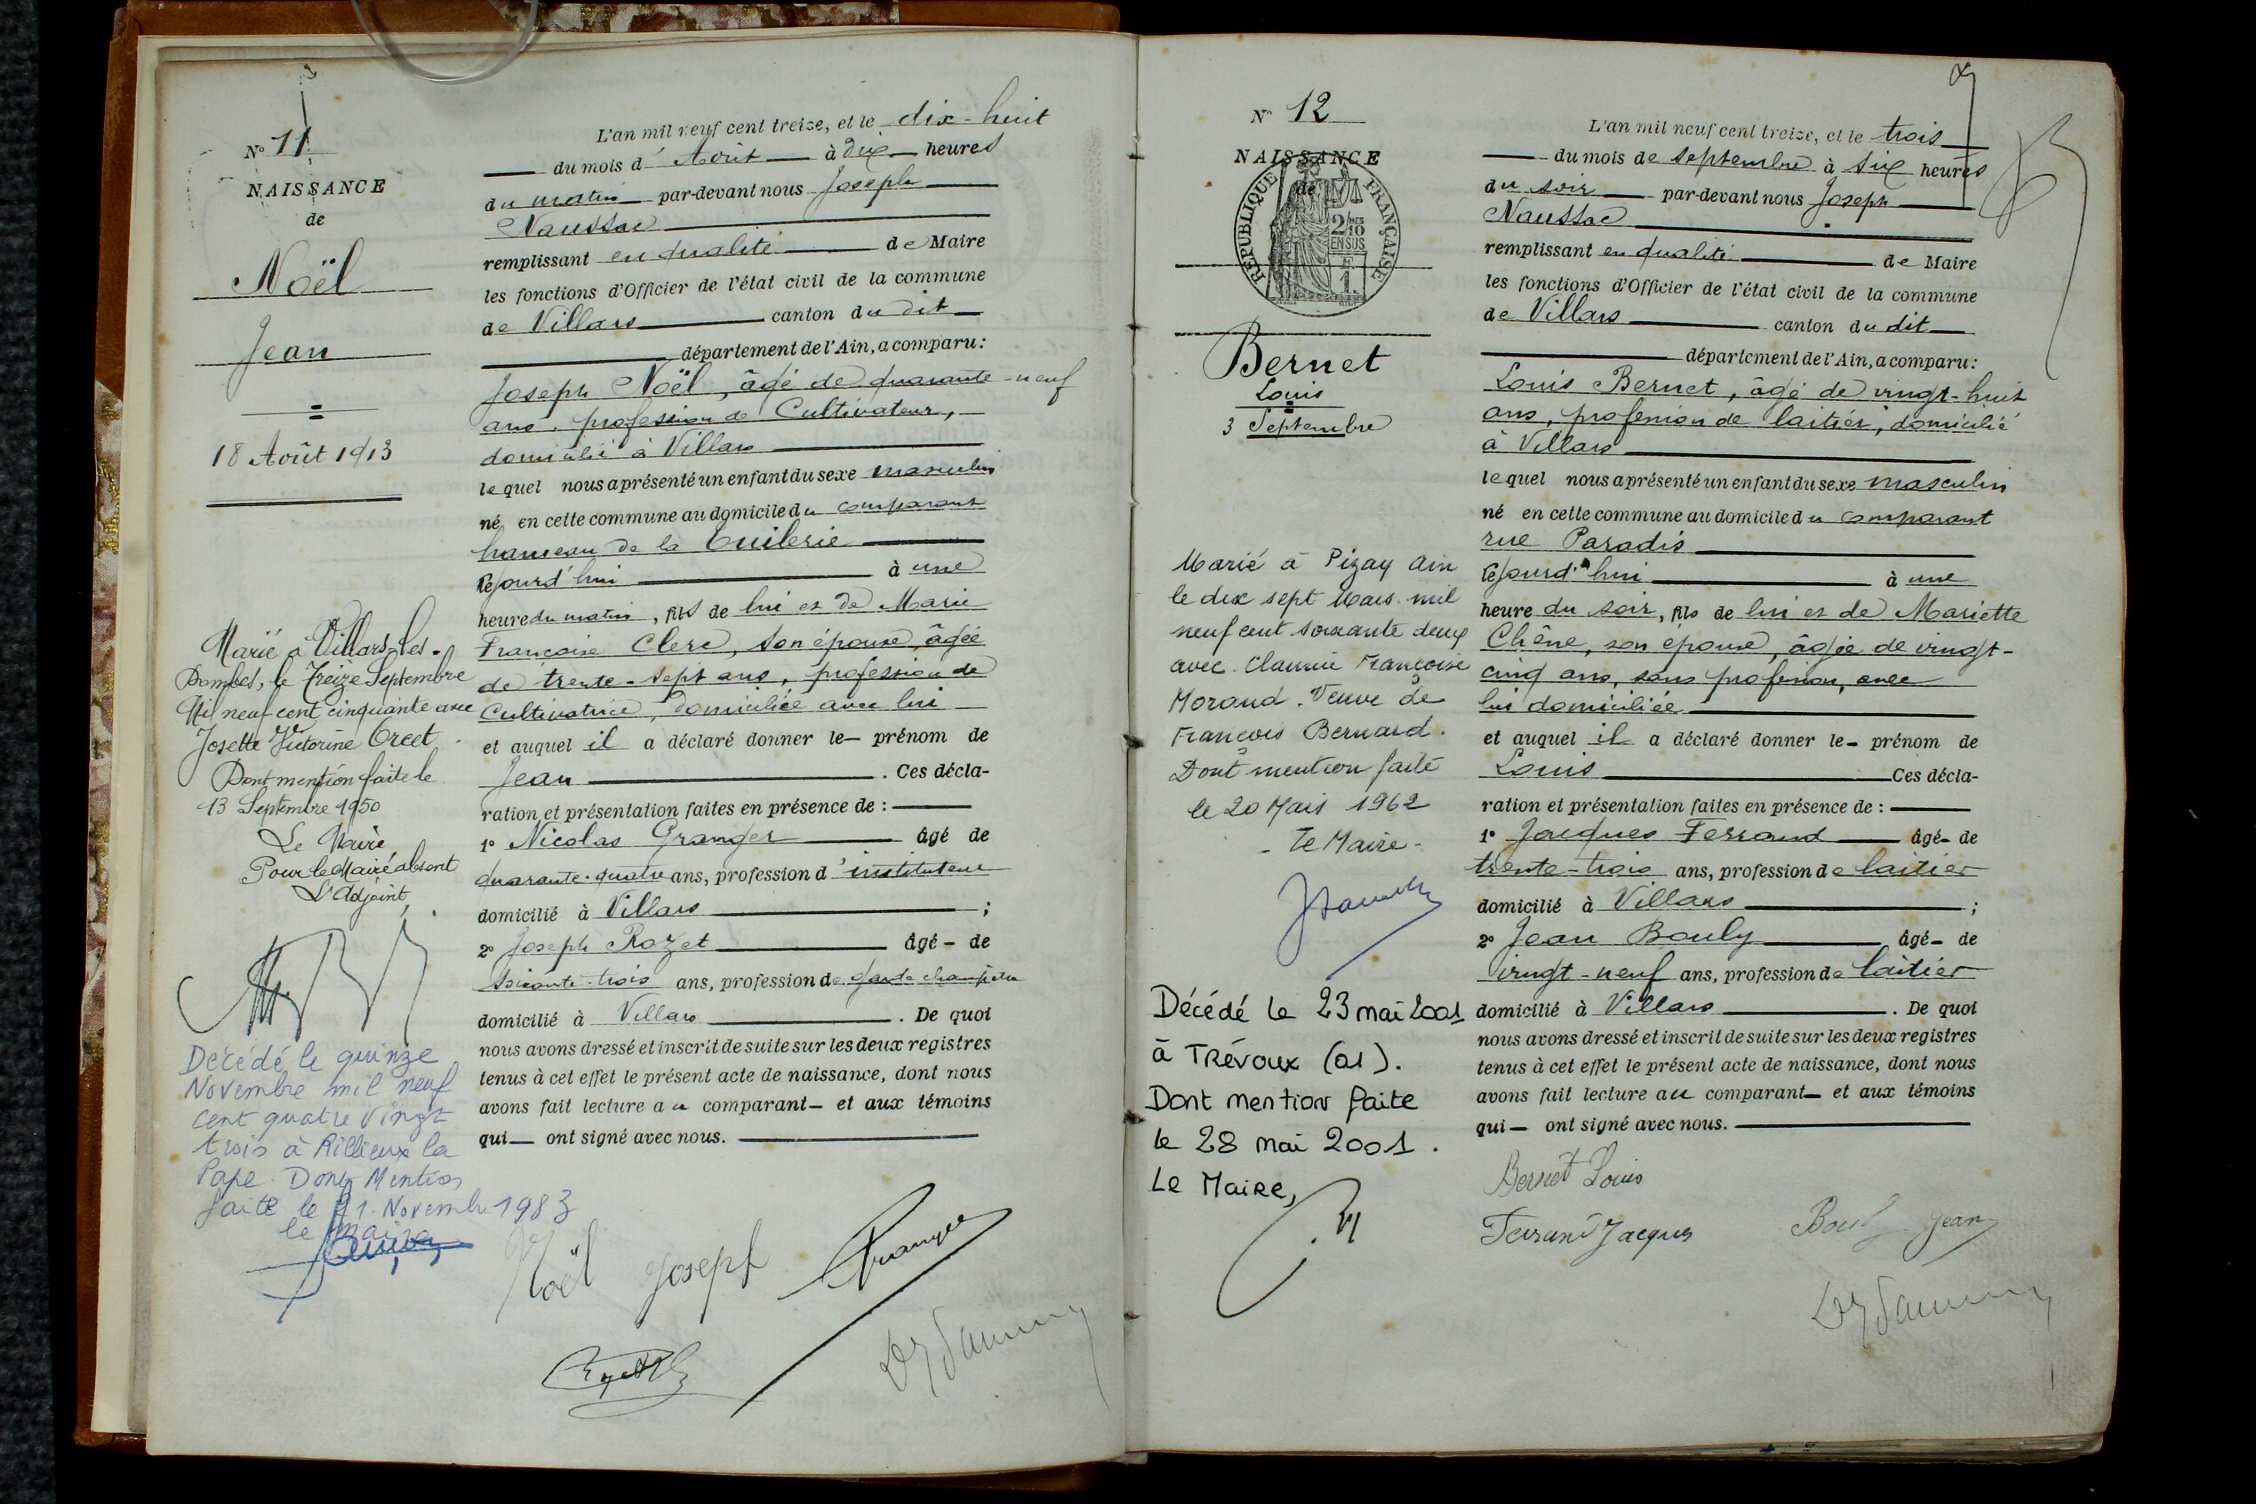 N° 11
NAISSANCE
de
Noël
Jean
18 Août 1913
L'an mil neuf cent treize, et le dix-huit
du mois d' Août à dix heures
du matin par-devant nous Joseph
Naussac
remplissant en qualité de Maire
les fonctions d'Officier de l'état civil de la commune
de Villars canton du dit
département de l'Ain, a comparu :
Joseph Noël, âgé de quarante-neuf
ans, profession de Cultivateur,
domicilié à Villars
lequel nous a présenté un enfant du sexe masculin
né en cette commune au domicile du comparant
hameau de la Tuilerie
cejourd'hui à une
heure du matin, fils de lui et de Marie
Françoise Clerc, son épouse, âgée
de trente-sept ans, profession de
Cultivatrice, domiciliée avec lui
et auquel il a déclaré donner le prénom de
Jean . Ces décla-
ration et présentation faites en présence de :
1° Nicolas Granger âgé de
quarante-quatre ans, profession d'instituteur
domicilié à Villars ;
2° Joseph Rozet âgé de
soixante-trois ans, profession de garde champêtre
domicilié à Villars . De quoi
nous avons dressé et inscrit de suite sur les deux registres
tenus à cet effet le présent acte de naissance, dont nous
avons fait lecture au comparant et aux témoins
qui ont signé avec nous.
Noël Joseph Granger
Marié à Villars-les-
Dombes, le Treize Septembre
Mil neuf cent cinquante avec
Josette Victorine
Dont mention faite le
13 Septembre 1950
Le Maire,
Pour le Maire absent
L'Adjoint,
Décédé le quinze
Novembre mil neuf
cent quatre vingt
trois à Rillieux la
Pape. Dont Mention
faite le 21 Novembre 1983
le maire
N° 12
NAISSANCE
de
RÉPUBLIQUE FRANÇAISE
2/10
EN SUS
F
1.
Bernet
Louis
3 Septembre
L'an mil neuf cent treize, et le trois
du mois de septembre à six heures
du soir par-devant nous Joseph
Naussac
remplissant en qualité de Maire
les fonctions d'Officier de l'état civil de la commune
de Villars canton du dit
département de l'Ain, a comparu :
Louis Bernet, âgé de vingt-huit
ans, profession de laitier, domicilié
à Villars
lequel nous a présenté un enfant du sexe masculin
né en cette commune au domicile du comparant
rue Paradis
cejourd'hui à une
heure du soir, fils de lui et de Mariette
Chêne, son épouse, âgée de vingt-
cinq ans, sans profession, avec
lui domiciliée
et auquel il a déclaré donner le prénom de
Louis Ces décla-
ration et présentation faites en présence de :
1° Jacques Ferrand âgé de
trente-trois ans, profession de laitier
domicilié à Villars ;
2° Jean Bouly âgé de
vingt-neuf ans, profession de laitier
domicilié à Villars . De quoi
nous avons dressé et inscrit de suite sur les deux registres
tenus à cet effet le présent acte de naissance, dont nous
avons fait lecture au comparant et aux témoins
qui ont signé avec nous.
Bernet Louis
Ferrand Jacques Bouly Jean
Marié à Pizay Ain
le dix sept Mars mil
neuf cent soixante deux
avec Françoise
Morand. Veuve de
François Bernard.
Dont mention faite
le 20 Mars 1962
- Le Maire -
Décédé le 23 mai 2001
à Trévoux (01).
Dont mention faite
le 28 mai 2001.
Le Maire,